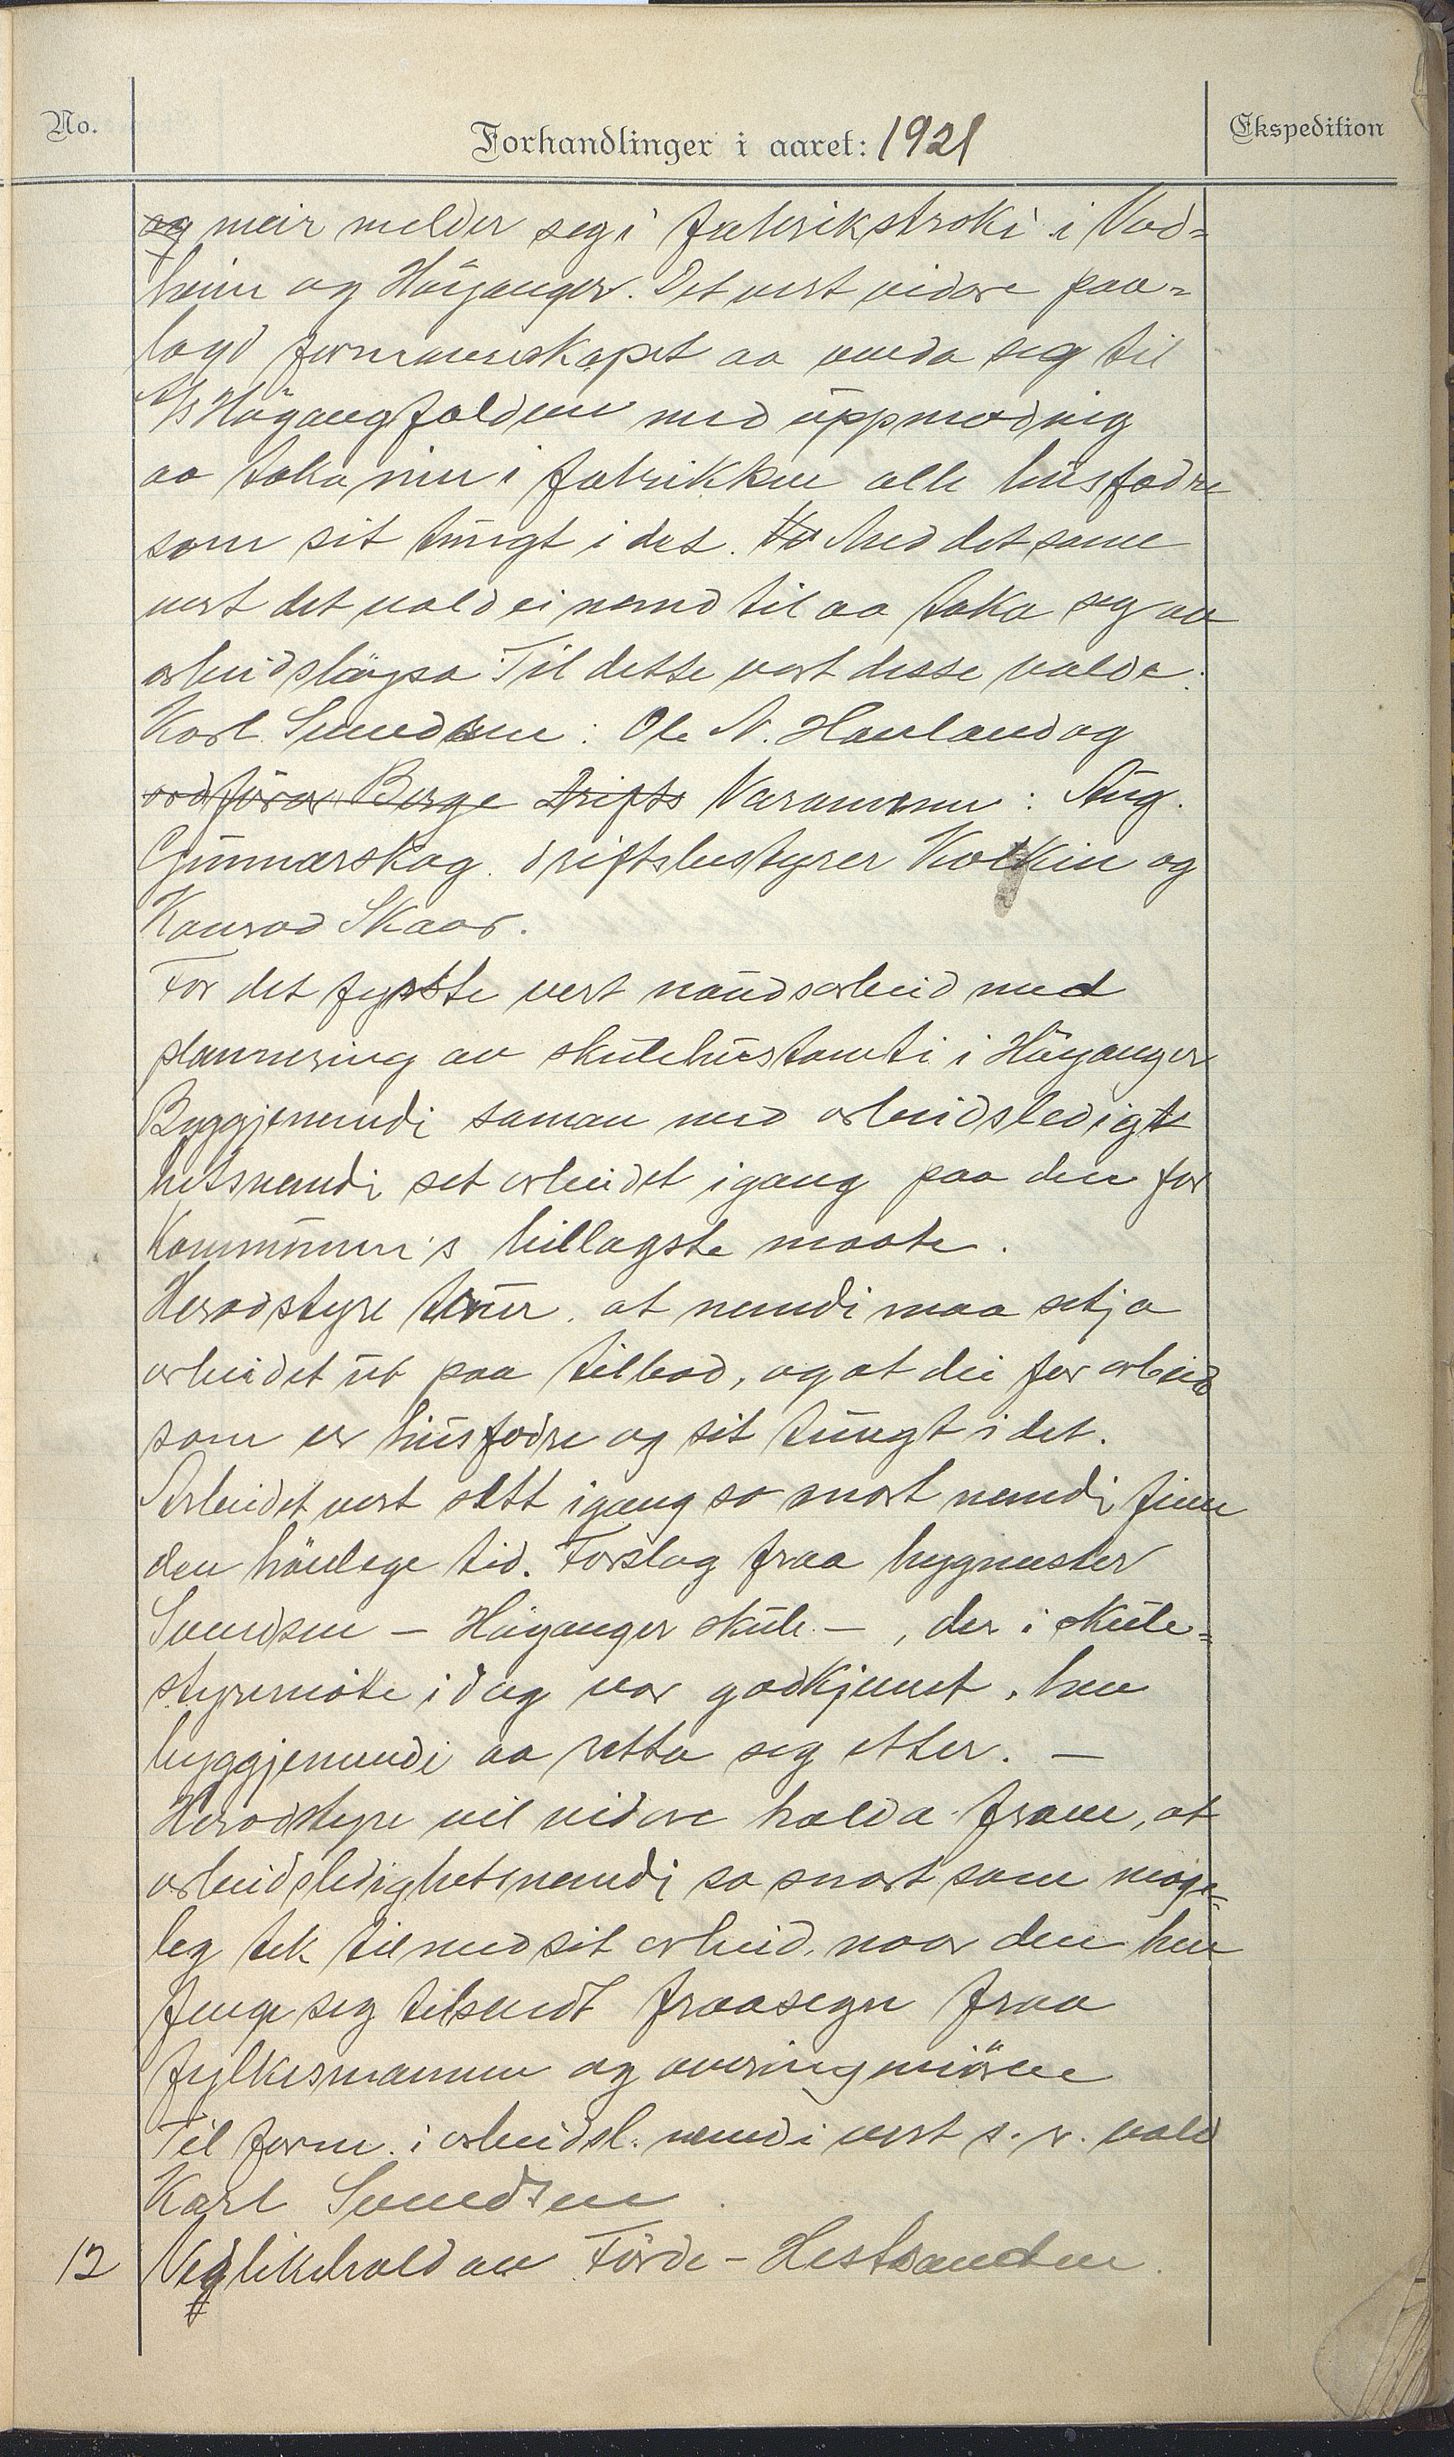 No.
Forhandlinger i aaret: 1921
Ekspedition
og meir melder seg i fabrikstroki i Vad=
heim og Höyanger. Det vert vidare paa=
lagd formannskapet aa venda seg til
A/S Höyangfaldene med uppmoding
aa taka inn i fabrikken alle husfedre
som sit tungt i det. Med det same
vert det vald ei nemd til aa taka seg av
arbeidsløysa. Til dette vert desse valde:
Karl Svendsen: Ole N. Havland og
ordförar Berge Drifts Varamenn: Aug.
Gunnarskog. driftsbestyrer Kolkin og
Konrad Skaar.
For det fyrste vert naudsarbeid med
planering av skulehustomti i Höyanger
Byggjenemdi saman med arbeidsledigt
hetsnemdi set arbeidet igang paa den for
Kommunen's billagste maate.
Heradstyre trur. at nemdi maa setja
arbeidet ut paa tilbod, og at dei fær arbeid
som er husfedre og sit tungt i det.
Arbeidet vert sett igang so snart nemdi finn
den høvlege tid. Forslag fraa bygmester
Svendsen – Höyanger skule –, der i skule=
styremöte idag var godkjennt, hev
byggjenemdi aa retta seg etter. –
Heradstyre vil vidare halda fram, at
arbeidsledighetsnemdi so snart som moge=
leg tek til med sit arbeid, naar den hev
fenge seg tilsendt fraasegn fraa
fylkesmannen og overingeniören
Til form. i arbeidsl. nemdi vert s. r. vald
Karl Svendsen.
12 Veglikehald av Förde – Hestsanden.